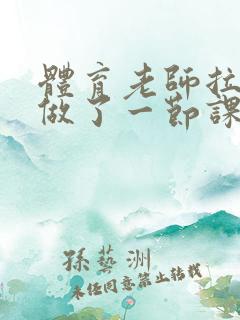 體育老師拉
做了一節課
孫藝洲
未經同意禁止轉載